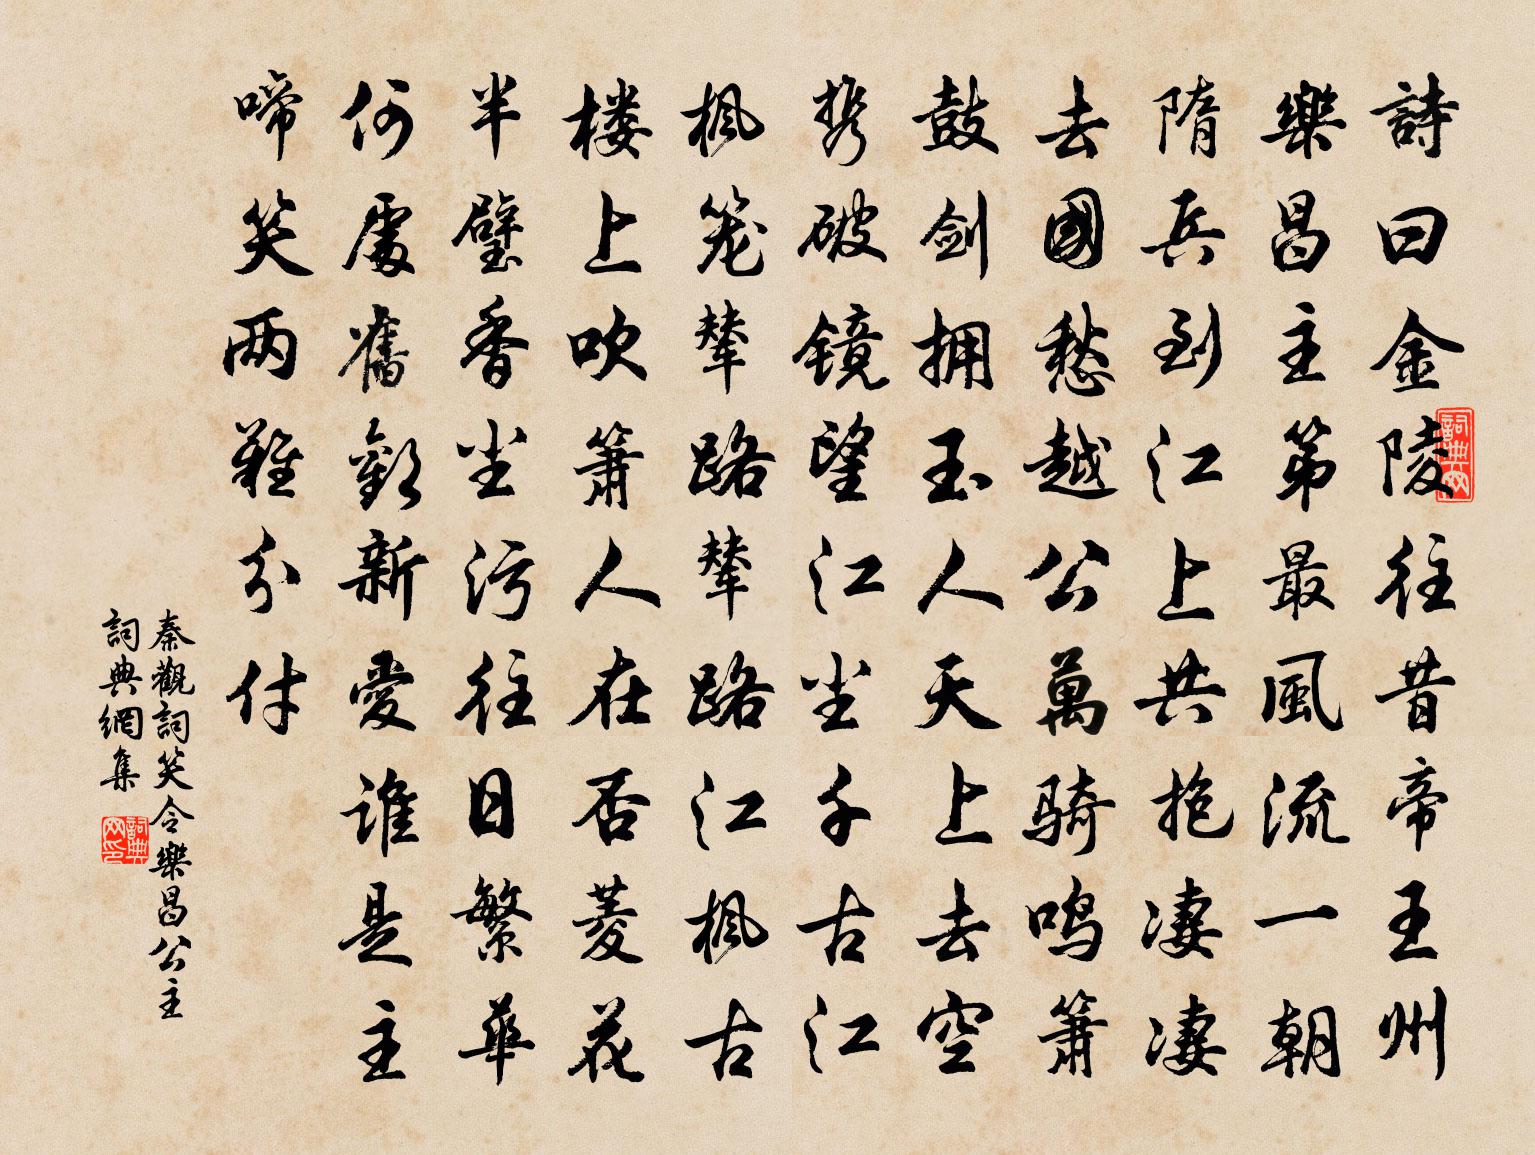 詩曰金陵往昔帝王州
樂昌主第最風流一朝
隋兵到江上共抱凄凄
去國愁越公萬騎鳴簫
鼓剑拥玉人天上去空
携破镜望江尘千古江
枫笼輦路輦路江枫古
楼上吹簫人在否菱花
半璧香尘污往日繁華
何處舊歡新愛誰是主
啼笑两難分付
秦觀詞笑令樂昌公主
詞典網集
詞典网
詞典网印